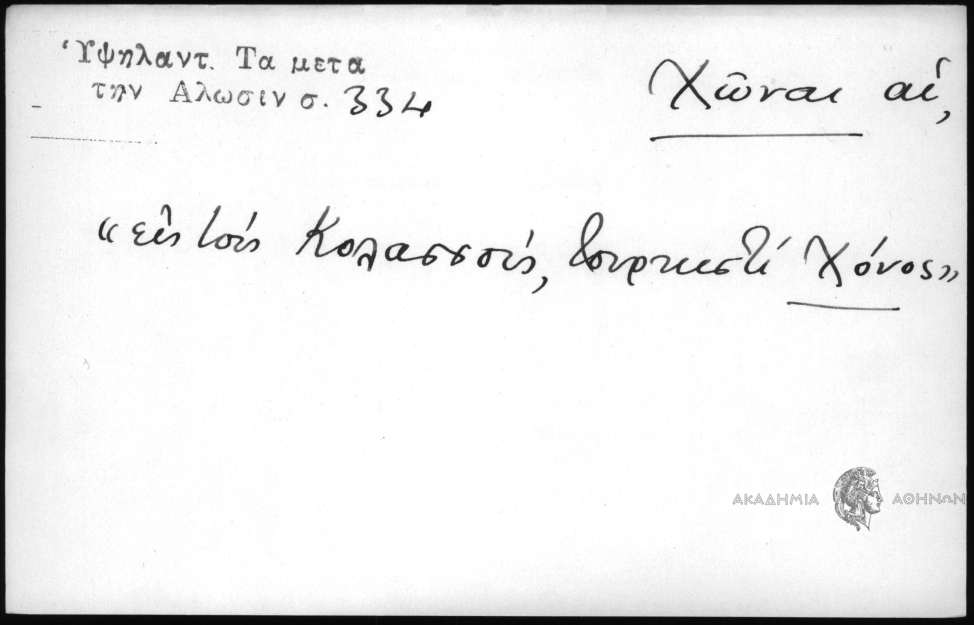 Ὑψηλαντ. Τα μετα
την Αλωσιν σ. 334
Χῶναι αἱ,
«εἰς τοὺς Κολασσοῖς, τουρκιστί Χόνος»
ΑΚΑΔΗΜΙΑ ΑΘΗΝΩΝ